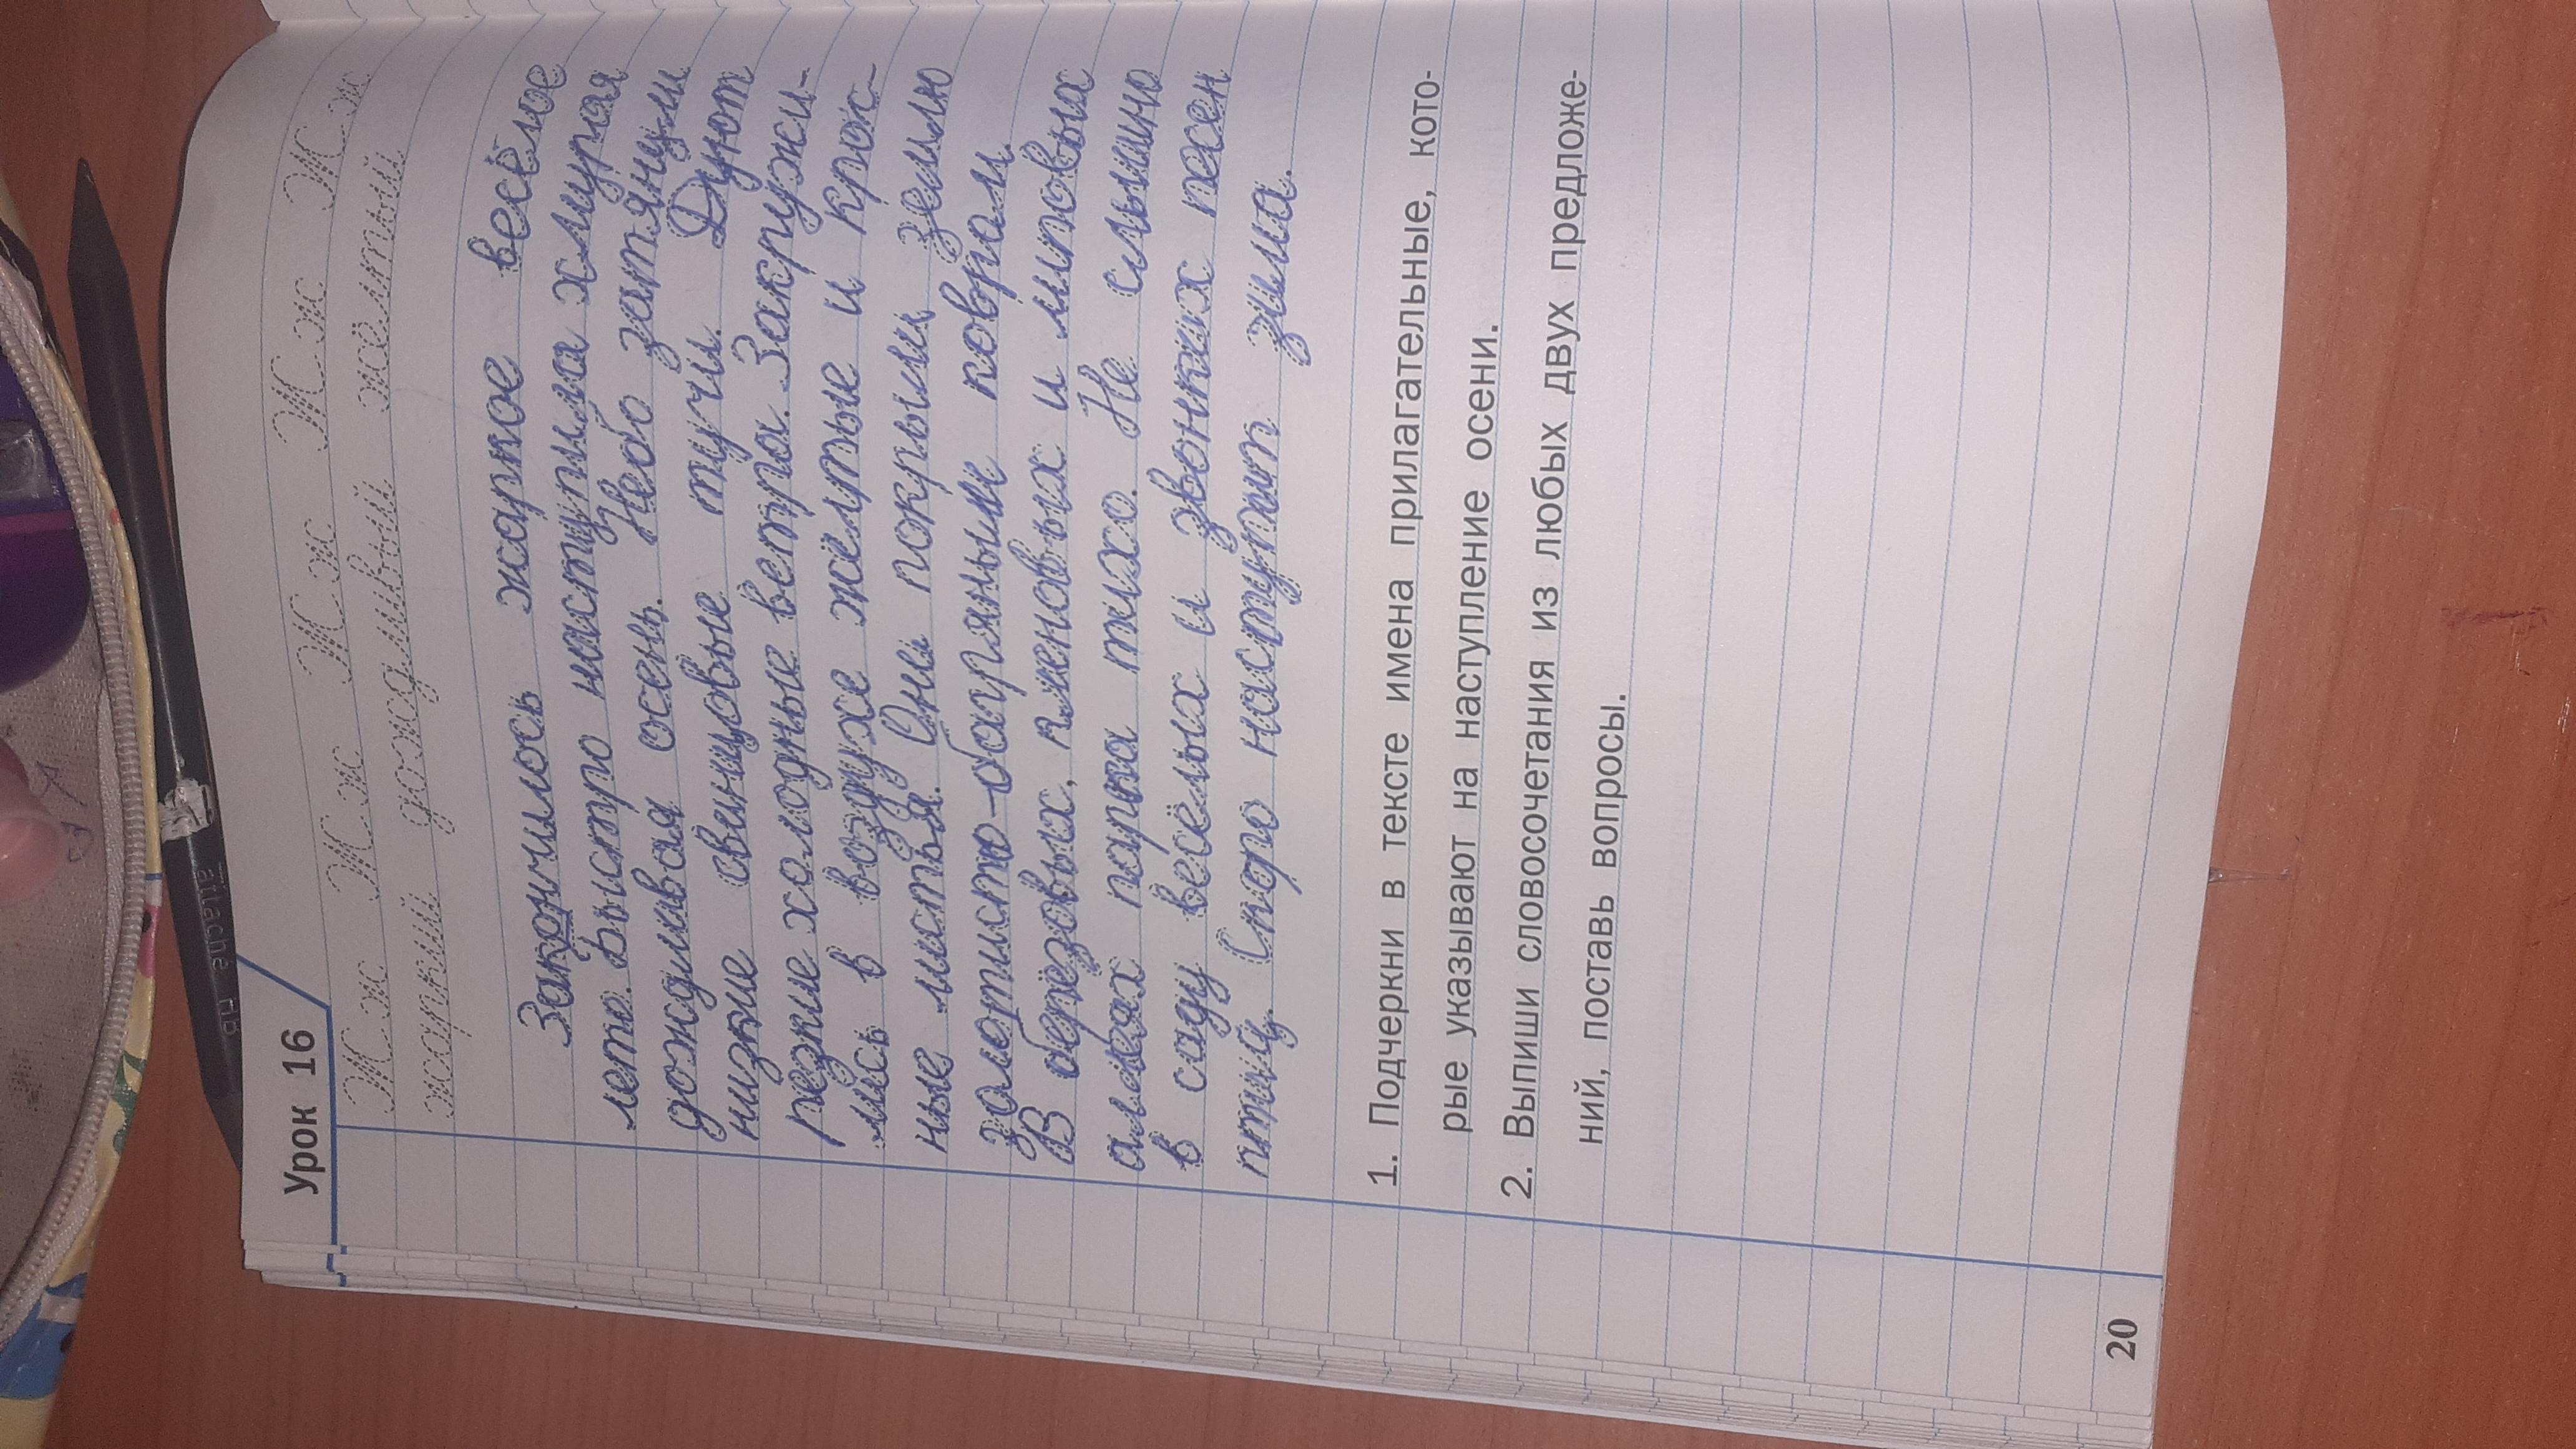 Урок 16
Ж ж Ж ж Ж ж Ж ж Ж ж
жаркий дождливый жёлтый
Закончилось жаркое весёлое
лето. Быстро наступила хмурая
дождливая осень. Небо затянули
низкие свинцовые тучи. Дуют
резкие холодные ветра. Закружи-
лись в воздухе жёлтые и крас-
ные листья. Они покрыли землю
золотисто-багряным ковром.
В берёзовых, кленовых и липовых
аллеях парка тихо. Не слышно
в саду весёлых и звонких песен
птиц. Скоро наступит зима.
1. Подчеркни в тексте имена прилагательные, кото-
рые указывают на наступление осени.
2. Выпиши словосочетания из любых двух предложе-
ний, поставь вопросы.
20